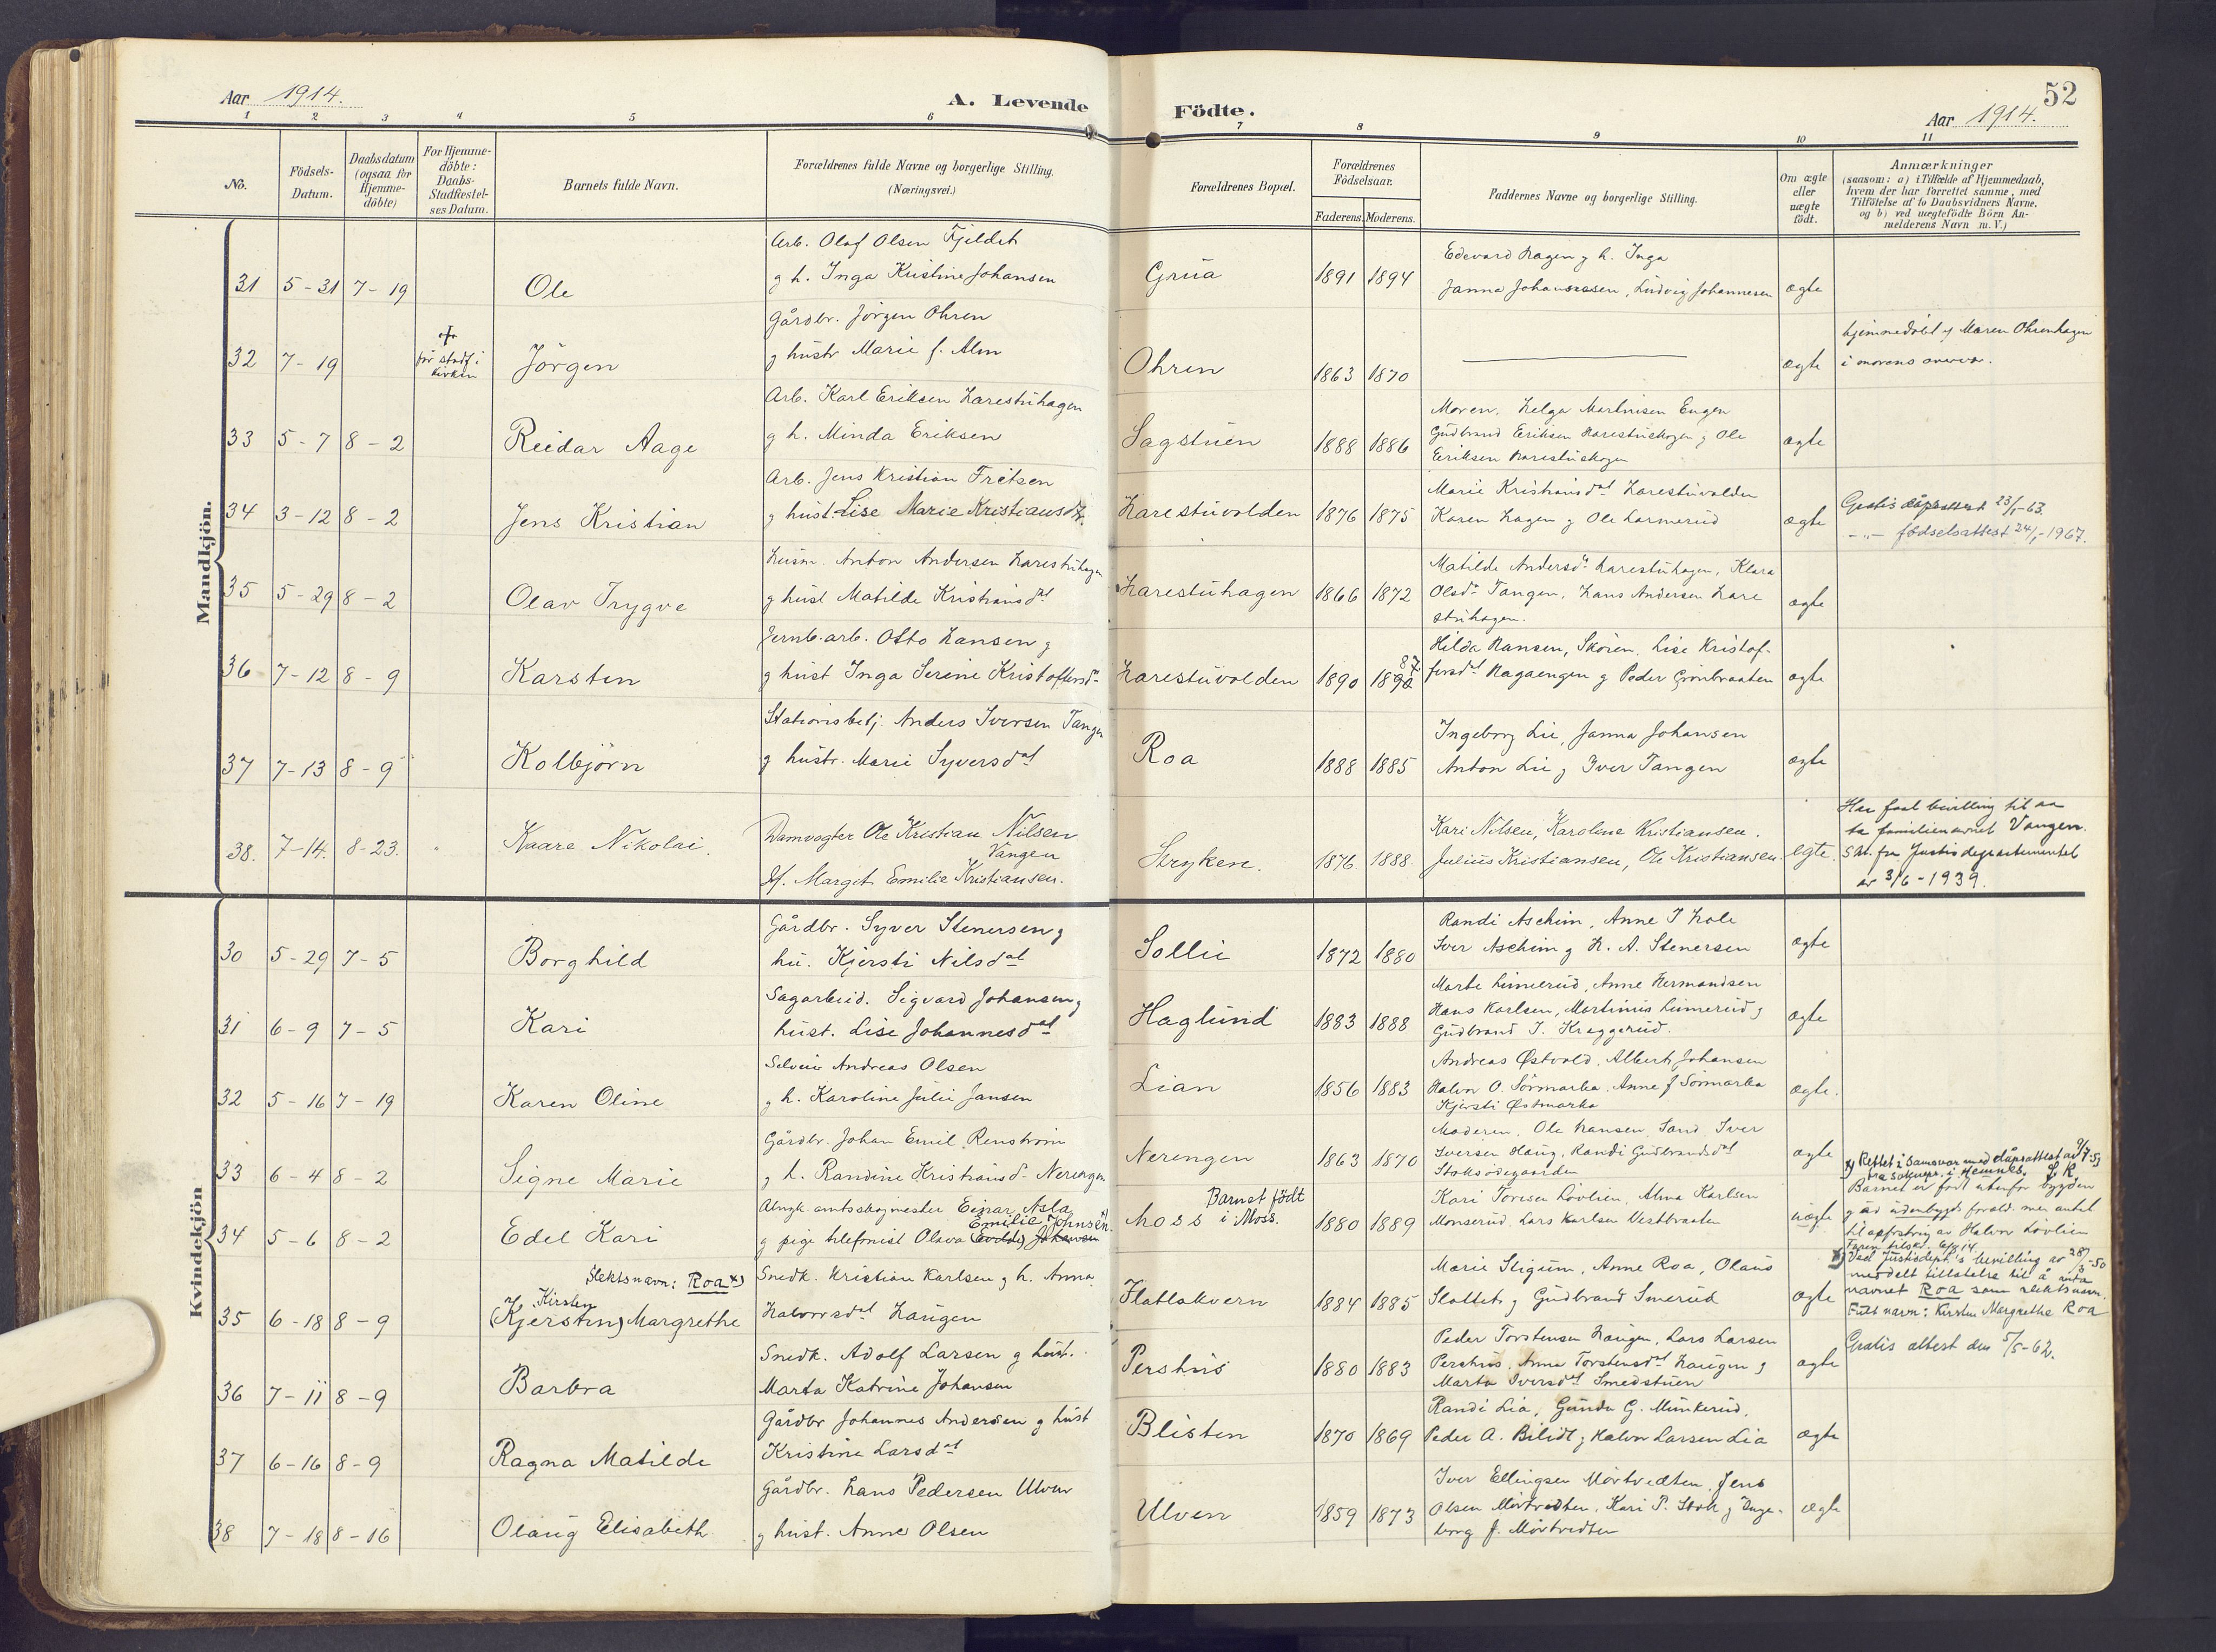 52
Aar 1914.
A. Levende
Födte.
Aar 1914.
1 2 3 4 5 6 7 8 9 10 11
No.
Födsels-
Datum.
Daabsdatum
(ogsaa for
Hjemme-
döbte)
For Hjemme-
döbte:
Daabs-
Stadfæstel-
ses Datum.
Barnets fulde Navn.
Forældrenes fulde Navne og borgerlige Stilling.
(Næringsvei.)
Forældrenes Bopæl.
Forældrenes
Födselsaar.
Faderens. Moderens.
Faddernes Navne og borgerlige Stilling.
Om ægte
eller
uægte
födt.
Anmærkninger
(saasom: a) i Tilfælde af Hjemmedaab,
hvem der har forrettet samme, med
Tilföielse af to Daabsvidners Navne.
og b) ved uægtefödte Börn An-
melderens Navn m. V.)
Mandkjön.
31 5-31 7-19 Ole
Arb. Olaf Olsen Fjeldet
g h. Inga Kristine Johansen
Grua 1891 1894
Edevard Hagen g h. Inga
Janna Johannessen, Ludvig Johannesen
ægte
32 7-19
før stadf. i
kirken
Jörgen
Gårdbr. Jörgen Ohren
g hustr Marie f. Alm
Ohren 1863 1870
ægte
hjemmedöbt af Maren Ohrenhagen
i morens overvær.
33 5-7 8-2 Reidar Aage
Arb. Karl Eriksen Harestuhagen
g h. Minda Eriksen
Sagstuen 1888 1886
Moren, Helga Martinisen Engen
Gudbrand Eriksen Harestuskogen g Ole
Eriksen Harestuskogen
ægte
34 3-12 8-2 Jens Kristian
Arb. Jens Kristian Fritsen
g hust. Lise Marie Kristiansdt.
Harestuvolden 1876 1875
Marie Kristiansdat Harestuvolden
Karen Hagen g Ole Harmerud
ægte
Gratis dåpsattest 23/1-63.
-"- fødselsattest 24/1-1967.
35 5-29 8-2 Olav Trygve
Husm. Anton Andersen Harestuhagen
g hust Matilde Kristiansdat
Harestuhagen 1866 1872
Matilde Andersdt. Harestuhagen, Klara
Olsdt. Tangen, Hans Andersen Hare
stuhagen.
ægte
36 7-12 8-9 Karsten
Jernb.arb. Otto Hansen g
g hust Inga Serine Kristoffersdt.
Harestuvolden 1890 1890 87
Hilda Hansen, Skoien, Lise Kristof-
fersdat Hagaengen g Peder Grönbraaten
ægte
37 7-13 8-9 Kolbjörn
Stationsbetj. Anders Iversen Tangen
g hustr. Marie Syversdat
Roa 1888 1885
Ingeborg Lie, Janna Johansen
Anton Lie g Iver Tangen
ægte
38. 7-14. 8-23. Kaare Nikolai.
Damvogter Ole Kristian Nilsen
Vangen
Hf. Margit Emilie Kristiansen.
Stryken. 1876. 1888.
Kari Nilsen, Karoline Kristiansen.
Julius Kristiansen, Ole Kristiansen.
egte.
Har faat bevilling til aa
ta familienavnet Vangen.
Skr. fra Justisdepartementet
av 3/6-1939.
Kvindekjön
30 5-29 7-5 Borghild
Gårdbr. Syver Stenersen g
hu. Kjersti Nilsdat
Sollie 1872 1880
Randi Aschim, Anne T Hole
Iver Aschim g H. A. Stenersen
ægte
31 6-9 7-5 Kari
Sagarbeid. Sigvard Johansen g
hust. Lise Johannesdat
Haglund 1883 1888
Marte Limerud, Anne Hermandsen
Hans Karlsen, Martinius Limerud g
Gudbrand I. Kraggerud.
ægte
32 5-16 7-19 Karen Oline
Selveier Andreas Olsen
g h. Karoline Julie Jansen
Lian 1856 1883
Andreas Østvold, Albert Johansen
Halvor O. Sörmarka. Anne J Sörmarka
Kjersti Østmarka
ægte.
33 6-4 8-2 Signe Marie
Gårdbr. Johan Emil Renström
g h. Randine Kristiansdt. Nerengen
Nerengen 1863 1870
Moderen. Ole Hansen Sand. Iver
Iversen Haug, Randi Gudbrandsdat
Stoksödegaarden
ægte
34 5-6 8-2 Edel Kari
amtsskogmester Einar Asla
g pige telefonist Olava (Evilde) Johansen
Emilie Johnsen x)
Moss
Barnet födt
i Moss.
1880 1889
Kari Toresen Lövlien, Alma Karlsen
Monserud, Lars Karlsen Vestbraaten
uægte
x) Rettet i samsvar med dåpsattest av 9/7-53
fra soknepr. i Hemnes. L R
Barnet er født utenfor bygden
g av udenbygds foræld. men antat
til opfostring av Halvor Lövlien
35 6-18 8-9
Slektsnavn: Roa x)
Kirsten
(Kjerstin) Margrethe
Snedk. Kristian Karlsen g h. Anna
Halvorsdat Haugen
Flatlakvern 1884 1885
Marie Stigum, Anne Roa, Olaus
Slattet g Gudbrand Smerud
ægte
x) Ved Justisdept's bevilling av 28/3-50
meddelt tillatelse til å anta
navnet Roa som slektsnavn.
Fullt navn: Kirsten Margrethe Roa
36 7-11 8-9 Barbra
Snedk. Adolf Larsen g hust.
Marta Katrine Johansen
Pershus 1880 1883
Peder Torstensen Haugen, Lars Larsen
Pershus, Anna Torstensdat Haugen g
Marta Iversdat Smedstuen
ægte
Gratis attest den 5/5-62.
37 6-16 8-9 Ragna Matilde
Gårdbr Johannes Andersen g hust
Kristine Larsdat
Blisten 1870 1869
Randi Lia, Gunda G. Munkerud,
Peder A. Bilidt g Halvor Larsen Lia
ægte
38 7-18 8-16 Olaug Elisabeth
Gårdbr. Hans Pedersen Ulven
g hust. Anne Olsen
Ulven 1859 1873
Iver Ellingsen Mörtvedten, Jens
Olsen Mörtvedten, Kari P. Stok g Inge-
borg J. Mörtvedten
ægte